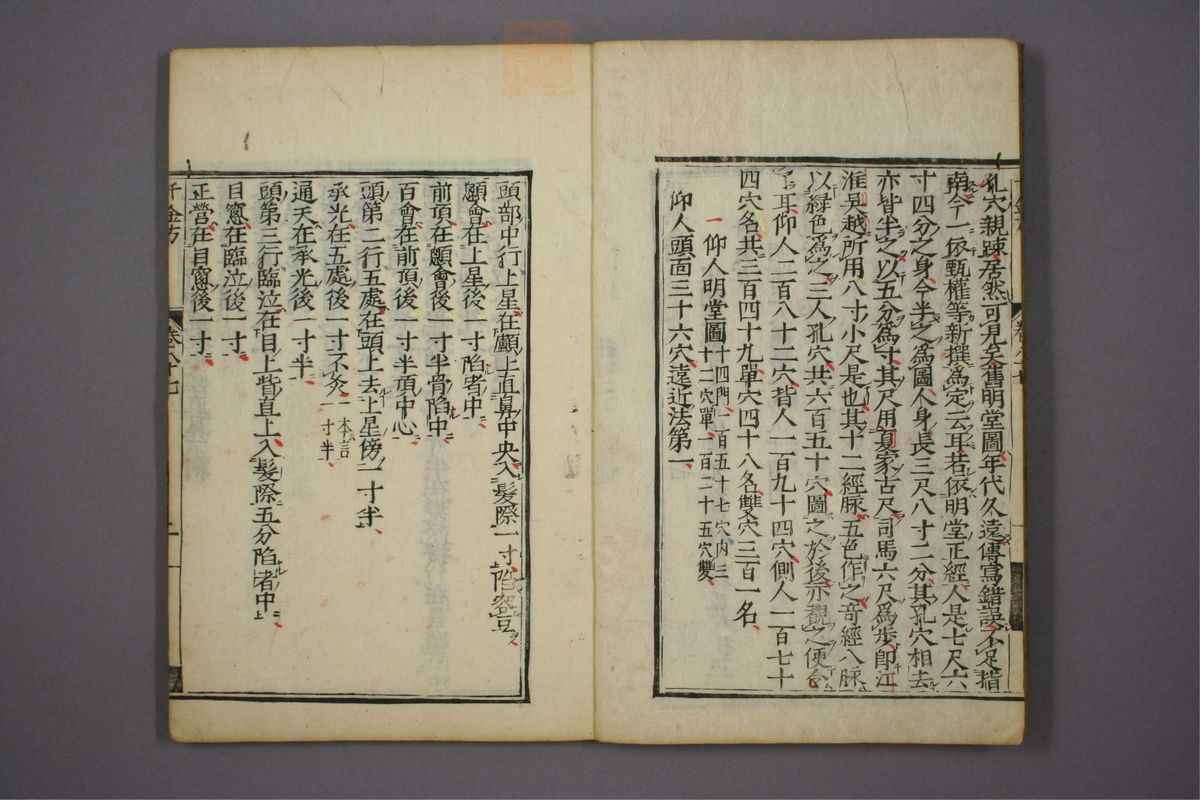 孔穴親疎居然可見矣舊明堂圖年代久遠傳寫錯誤不足指
南今一依甄權等新撰為定云耳若依明堂正經人是七尺六
寸四分之身今半之為圖人身長三尺八寸二分其孔穴相去
亦皆半之以五分為寸其尺用夏家古尺司馬六尺為步即江
淮吳越所用八寸小尺是也其十二經脉五色作之竒經八脉
以綠色為之三人孔穴共六百五十穴圖之於後亦覩之便令
了耳仰人二百八十二穴背人一百九十四穴側人一百七十
四穴名共三百四十九單穴四十八名雙穴三百一名
一 仰人明堂圖十四門一百五十七穴内三
十二穴單一百二十五穴雙
仰人頭面三十六穴遠近法第一
頭部中行上星在顱上直鼻中央入髮際一寸陷容豆
顖會在上星後一寸陷者中
前頂在顖會後一寸半骨陷中
百會在前頂後一寸半頂中心
頭第二行五處在頭上去上星傍一寸半
承光在五處後一寸不灸一本言
一寸半
通天在承光後一寸半
頭第三行臨泣在目上眥直上入髮際五分陷者中
目窻在臨泣後一寸
正營在目窻後一寸
千金方
卷八十七